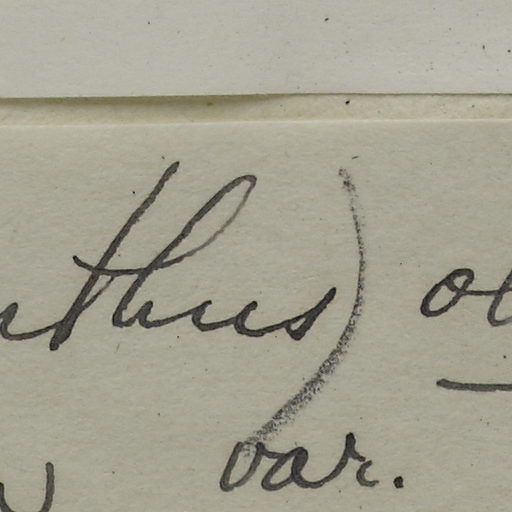 nthus) ol
var.